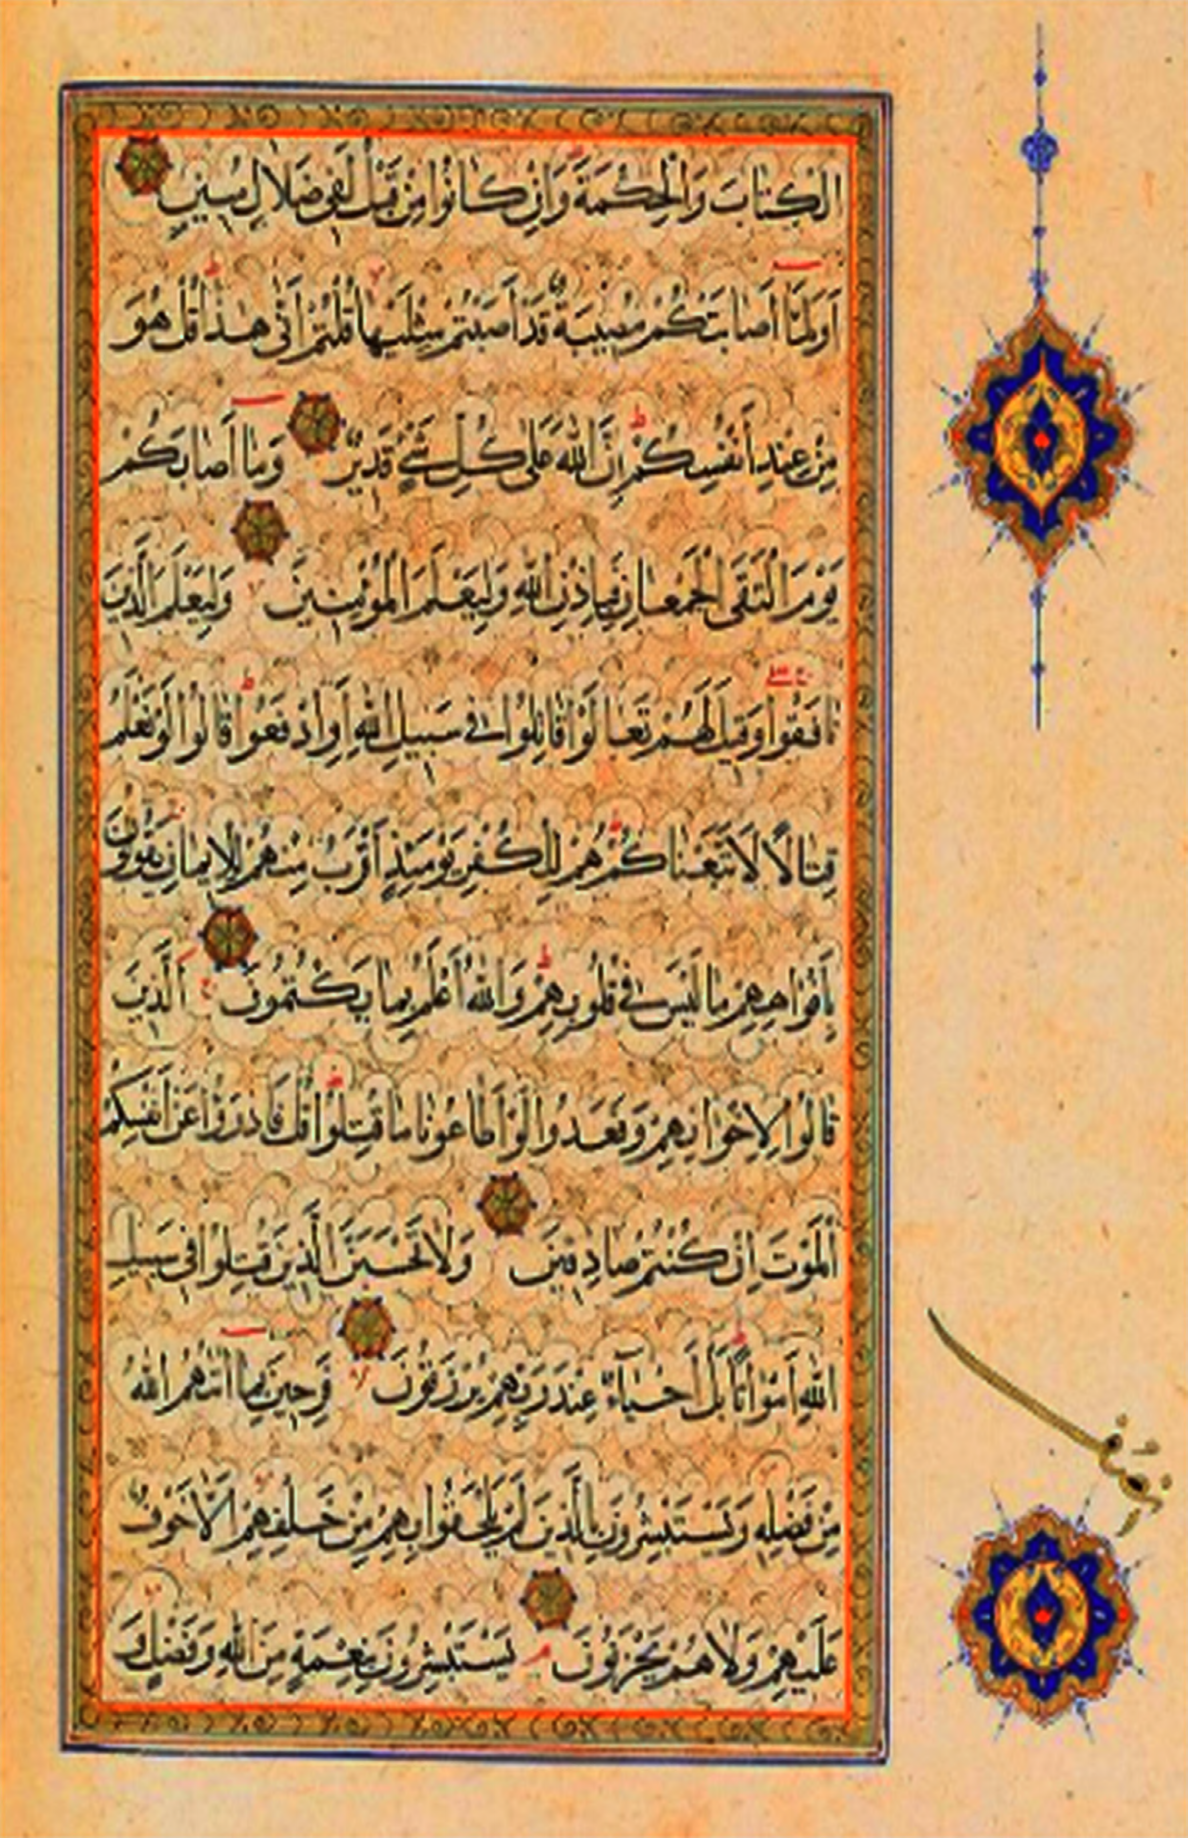 الْكِتَابَ وَالْحِكْمَةَ وَإِنْ كَانُوا مِنْ قَبْلُ لَفِي ضَلَالٍ مُبِينٍ
أَوَلَمَّا أَصَابَتْكُمْ مُصِيبَةٌ قَدْ أَصَبْتُمْ مِثْلَيْهَا قُلْتُمْ أَنَّى هَذَا قُلْ هُوَ
مِنْ عِنْدِ أَنْفُسِكُمْ إِنَّ اللَّهَ عَلَى كُلِّ شَيْءٍ قَدِيرٌ وَمَا أَصَابَكُمْ
يَوْمَ الْتَقَى الْجَمْعَانِ فَبِإِذْنِ اللَّهِ وَلِيَعْلَمَ الْمُؤْمِنِينَ وَلِيَعْلَمَ الَّذِينَ
نَافَقُوا وَقِيلَ لَهُمْ تَعَالَوْا قَاتِلُوا فِي سَبِيلِ اللَّهِ أَوِ ادْفَعُوا قَالُوا لَوْ نَعْلَمُ
قِتَالًا لَاتَّبَعْنَاكُمْ هُمْ لِلْكُفْرِ يَوْمَئِذٍ أَقْرَبُ مِنْهُمْ لِلْإِيمَانِ يَقُولُونَ
بِأَفْوَاهِهِمْ مَا لَيْسَ فِي قُلُوبِهِمْ وَاللَّهُ أَعْلَمُ بِمَا يَكْتُمُونَ الَّذِينَ
قَالُوا لِإِخْوَانِهِمْ وَقَعَدُوا لَوْ أَطَاعُونَا مَا قُتِلُوا قُلْ فَادْرَءُوا عَنْ أَنْفُسِكُمُ
الْمَوْتَ إِنْ كُنْتُمْ صَادِقِينَ وَلَا تَحْسَبَنَّ الَّذِينَ قُتِلُوا فِي سَبِيلِ
اللَّهِ أَمْوَاتًا بَلْ أَحْيَاءٌ عِنْدَ رَبِّهِمْ يُرْزَقُونَ فَرِحِينَ بِمَا آتَاهُمُ اللَّهُ
مِنْ فَضْلِهِ وَيَسْتَبْشِرُونَ بِالَّذِينَ لَمْ يَلْحَقُوا بِهِمْ مِنْ خَلْفِهِمْ أَلَّا خَوْفٌ
عَلَيْهِمْ وَلَا هُمْ يَحْزَنُونَ يَسْتَبْشِرُونَ بِنِعْمَةٍ مِنَ اللَّهِ وَفَضْلٍ وَ
نصف